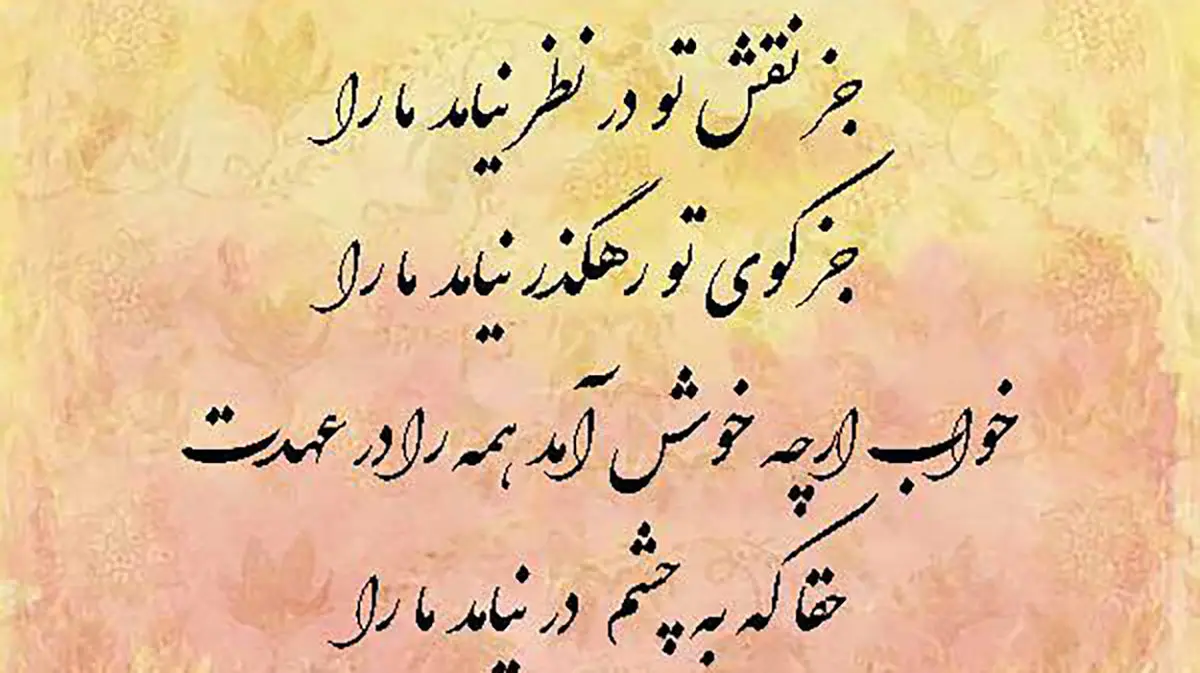 جز نقش تو در نظر نیامد ما را
جز کوی تو رهگذر نیامد ما را
خواب ارچه خوش آمد همه را در عهدت
حقا که به چشم در نیامد ما را